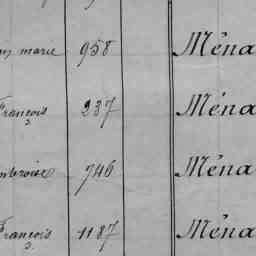 marie 958 Ména
François 237 Ména
Ambroise 746 Ména
François 1187 Ména